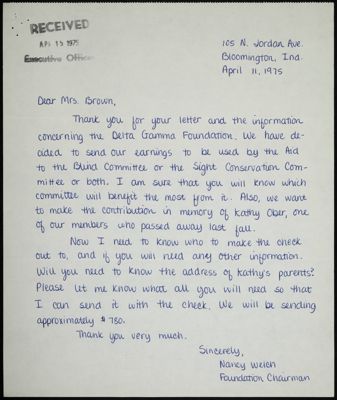 RECEIVED
APR 15 1975
Executive Offices
105 N. Jordan Ave.
Bloomington, Ind.
April 11, 1975
Dear Mrs. Brown,
Thank you for your letter and the information
concerning the Delta Gamma Foundation. We have de-
cided to send our earnings to be used by the Aid
to the Blind Committee or the Sight Conservation Com-
mittee or both. I am sure that you will know which
committee will benefit the most from it. Also, we want
to make the contribution in memory of Kathy Ober, one
of our members who passed away last fall.
Now I need to know who to make the check
out to, and if you will need any other information.
Will you need to know the address of Kathy's parents?
Please let me know what all you will need so that
I can send it with the check. We will be sending
approximately $780.
Thank you very much.
Sincerely,
Nancy Welch
Foundation Chairman